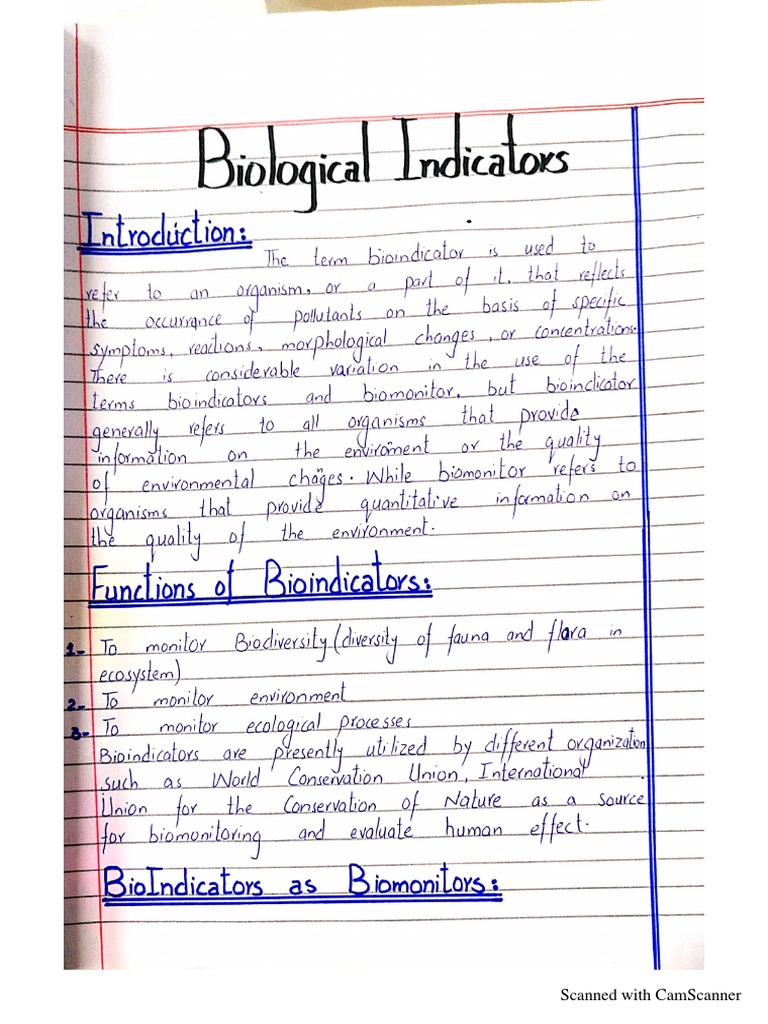 Biological Indicators
Introduction:
The term bioindicator is used to
refer to an organism, or a part of it, that reflects
the occurrance of pollutants on the basis of specific
symptoms, reactions, morphological changes, or concentrations.
There is considerable variation in the use of the
terms bioindicators and biomonitor, but bioindicator
generally refers to all organisms that provide
information on the enviroment or the quality
of environmental chages. While biomonitor refers to
organisms that provide quantitative information on
the quality of the environment.
Functions of Bioindicators:
1- To monitor Biodiversity (diversity of fauna and flora in
ecosystem)
2- To monitor environment
3- To monitor ecological processes
Bioindicators are presently utilized by different organization
such as World Conservation Union, International
Union for the Conservation of Nature as a source
for biomonitoring and evaluate human effect.
BioIndicators as Biomonitors:
Scanned with CamScanner